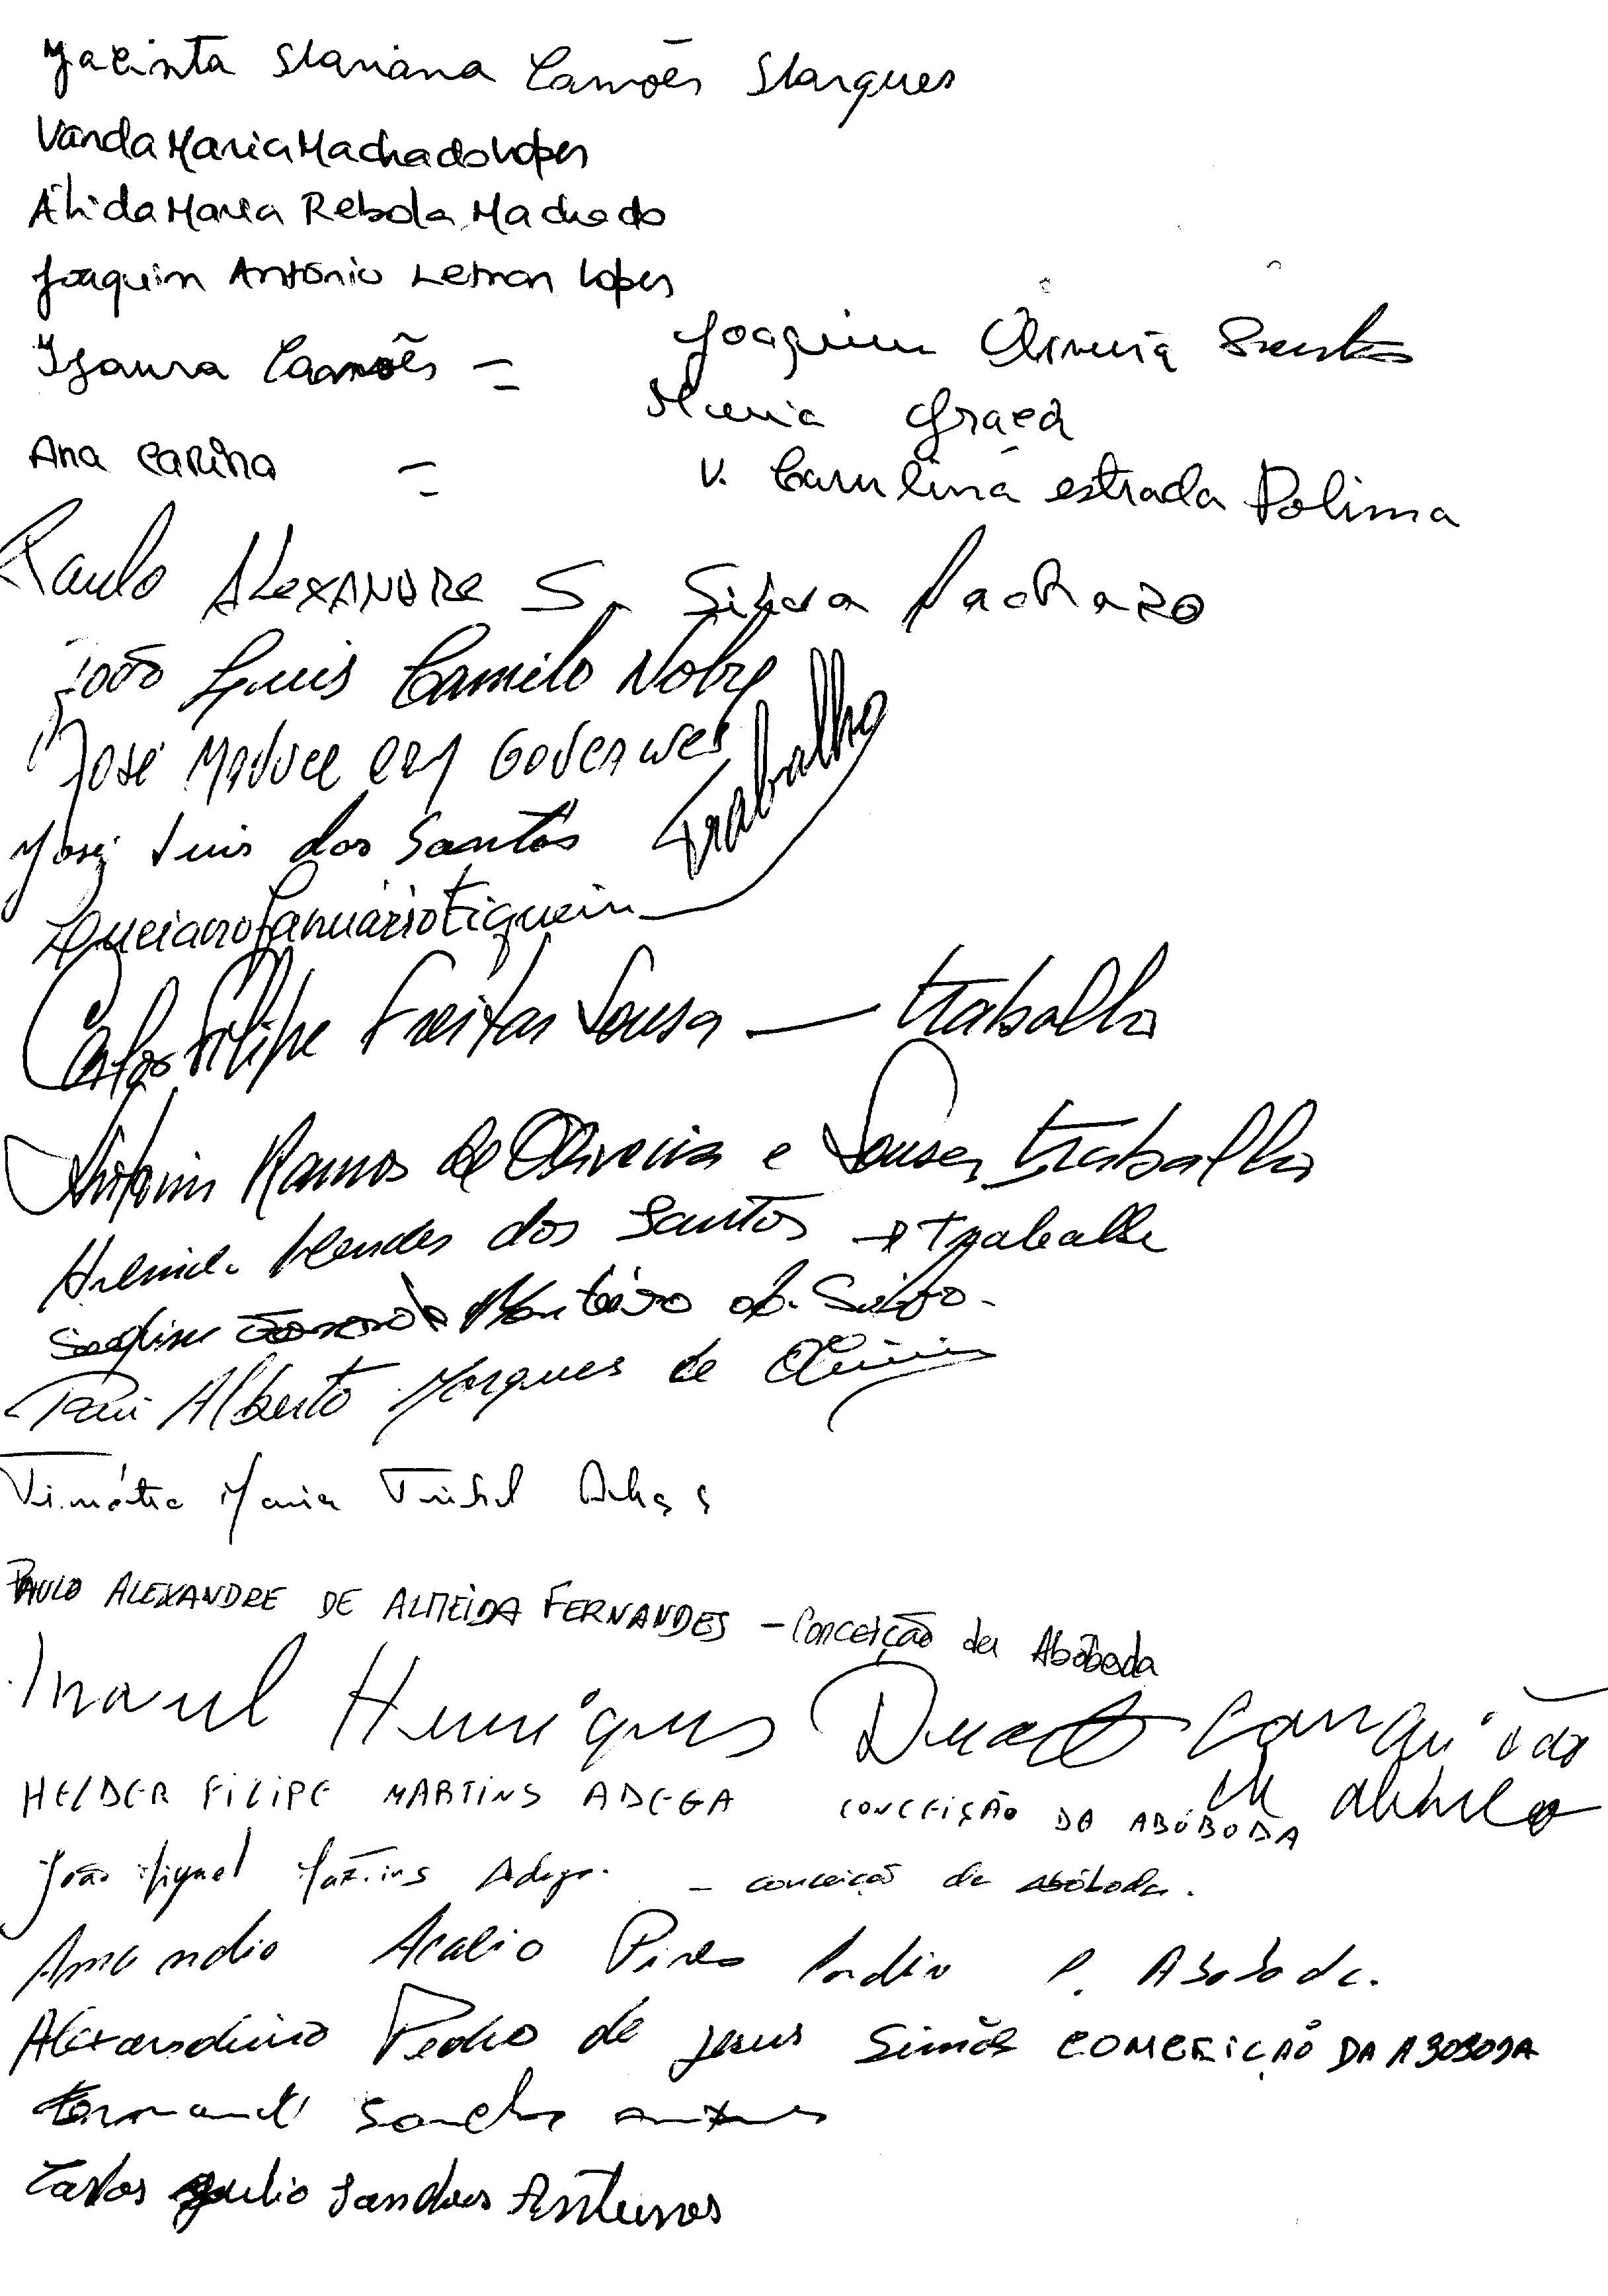 Jacinta Mariana Camões Marques
Vanda Maria Machado Lopes
Maria Rebola Machado
Joaquim António Leman Lopes
Isaura Camões =
Joaquim Oliveira Santos
Maria Graça
Ana Carina =
V. Carulina estrada Polima
Paulo ALEXANDRE S. Silva Machado
João Luis Camilo Nobre
José Manuel
José Luis dos Santos
Luciano Januário Figueira Trabalho
Carlos Filipe Freitas Sousa — trabalho
António Ramos de Oliveira e Sousa, trabalho
Mendes dos Santos → trabalho
Monteiro da Silva.
Rui Alberto Marques de Oliveira
Maria
PAULO ALEXANDRE DE ALMEIDA FERNANDES - Conceição da Abóboda
Henriques Duarte
HELDER FILIPE MARTINS ADEGA CONCEIÇÃO DA ABÓBODA
João Miguel Martins Adega. - conceição da abóboda.
Amandio Acacio Pires Aboboda.
Alexandrino Pedro de Jesus Simões CONCEIÇÃO DA ABOBODA
Carlos Julio Sanches Antunes